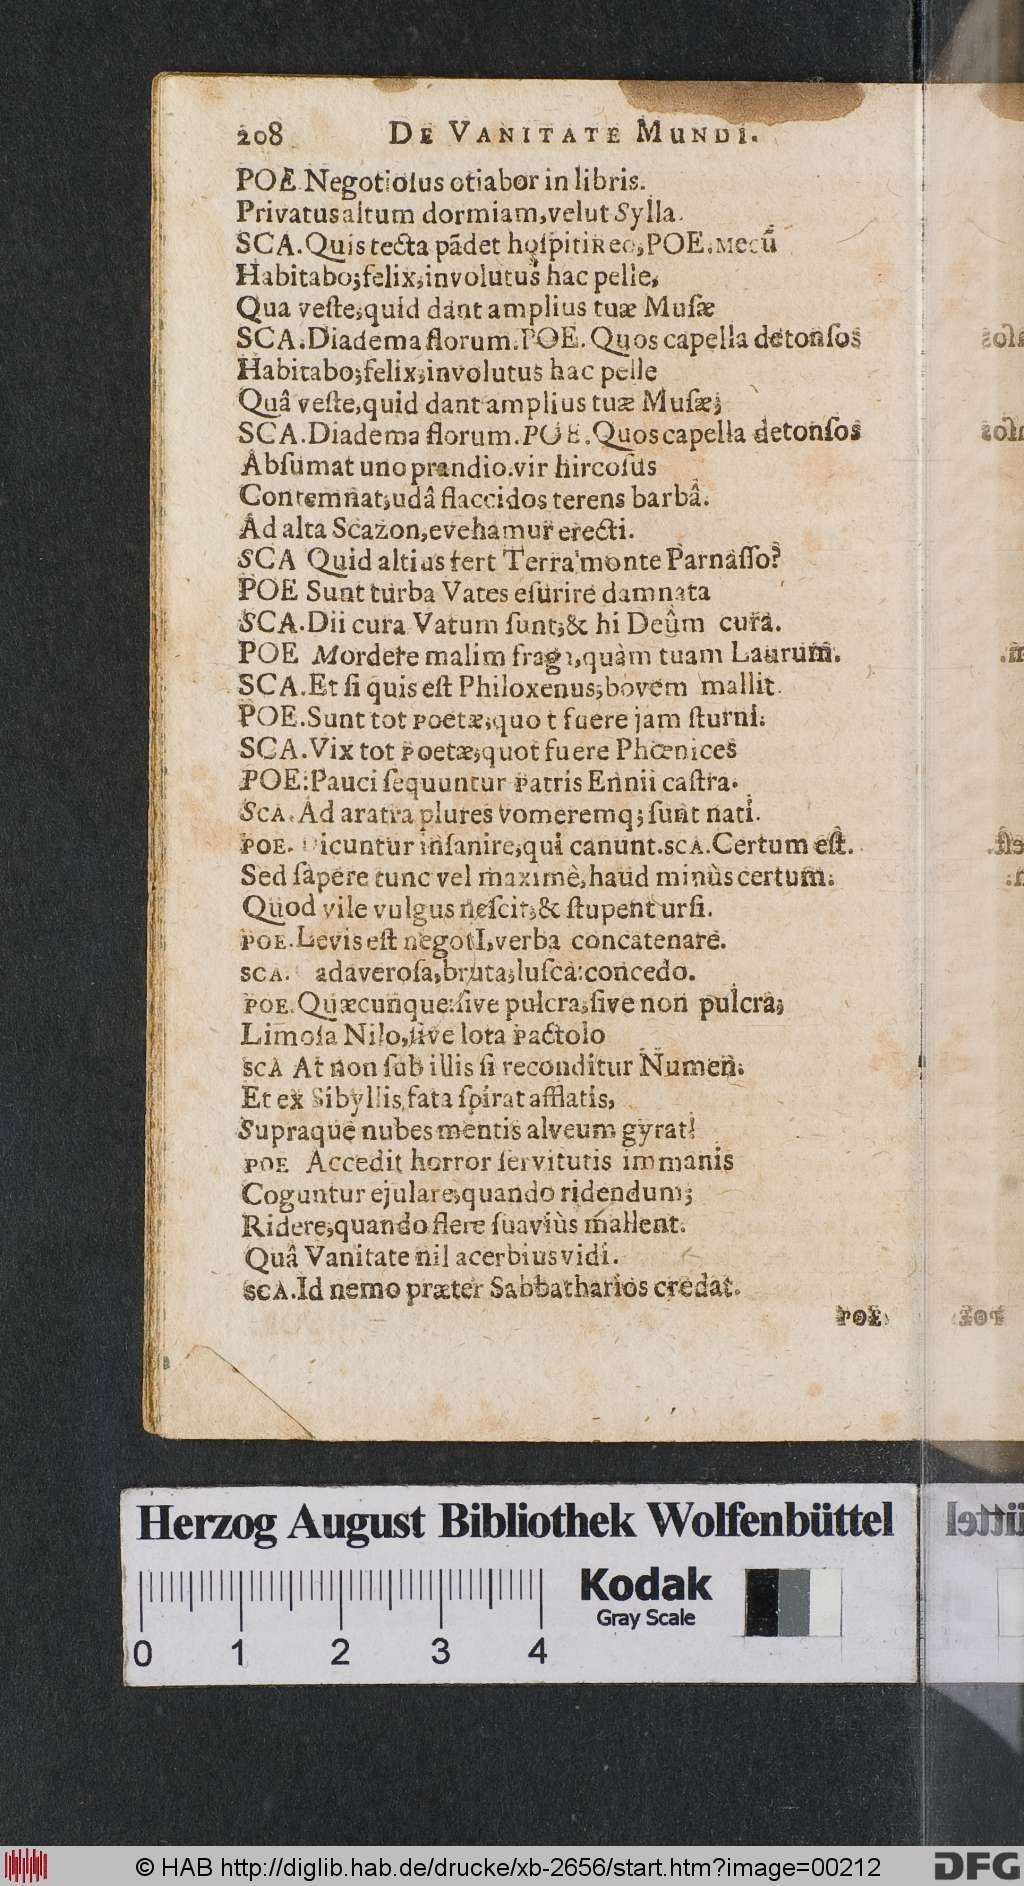 208 DE VANITATE MUNDI.
POE Negotiosus otiabor in libris.
Privatus altum dormiam, velut Sylla.
SCA. Quis tecta pādet hospiti Reo, POE. Mecū
Habitabo; felix, involutus hac pelle,
Qua veste, quid dant amplius tuæ Musæ
SCA. Diadema florum. POE. Quos capella detonsos
Habitabo; felix; involutus hac pelle
Quâ veste, quid dant amplius tuæ Musæ;
SCA. Diadema florum. POE. Quos capella detonsos
Absumat uno prandio. vir hircosus
Contemnat; udâ flaccidos terens barbâ.
Ad alta Scazon, evehamur erecti.
SCA Quid altius fert Terra monte Parnasso?
POE Sunt turba Vates esurire damnata
SCA. Dii cura Vatum sunt; & hi Deûm cura.
POE Mordere malim fraga, quàm tuam Laurum.
SCA. Et si quis est Philoxenus; bovem mallit.
POE. Sunt tot poetæ; quo t fuere jam sturni.
SCA. Vix tot poetæ; quot fuere Phœnices
POE: Pauci sequuntur patris Ennii castra.
SCA. Ad aratra plures vomeremq; sunt nati.
POE. Dicuntur insanire, qui canunt. SCA. Certum est.
Sed sapere tunc vel maximè, haud minùs certum:
Quod vile vulgus nescit; & stupent ursi.
POE. Levis est negotI, verba concatenare.
SCA. adaverosa, bruta; lusca: concedo.
POE. Quæcunque: sive pulcra, sive non pulcra;
Limosa Nilo, sive lota Pactolo
SCA At non sub illis si reconditur Numen.
Et ex Sibyllis fata spirat afflatis,
Supraque nubes mentis alveum gyrat!
POE Accedit horror servitutis immanis
Coguntur ejulare, quando ridendum;
Ridere, quando flere suaviùs mallent.
Quâ Vanitate nil acerbius vidi.
SCA. Id nemo præter Sabbatharios credat.
POE
Herzog August Bibliothek Wolfenbüttel
0 1 2 3 4
Kodak
Gray Scale
© HAB http://diglib.hab.de/drucke/xb-2656/start.htm?image=00212
DFG